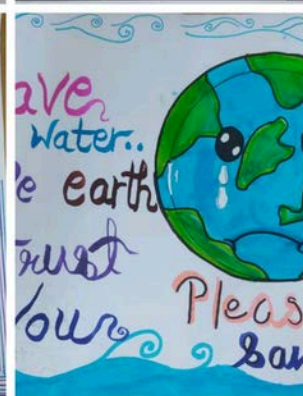 ave
Water..
e earth
Trust
Your
Pleas
Sav